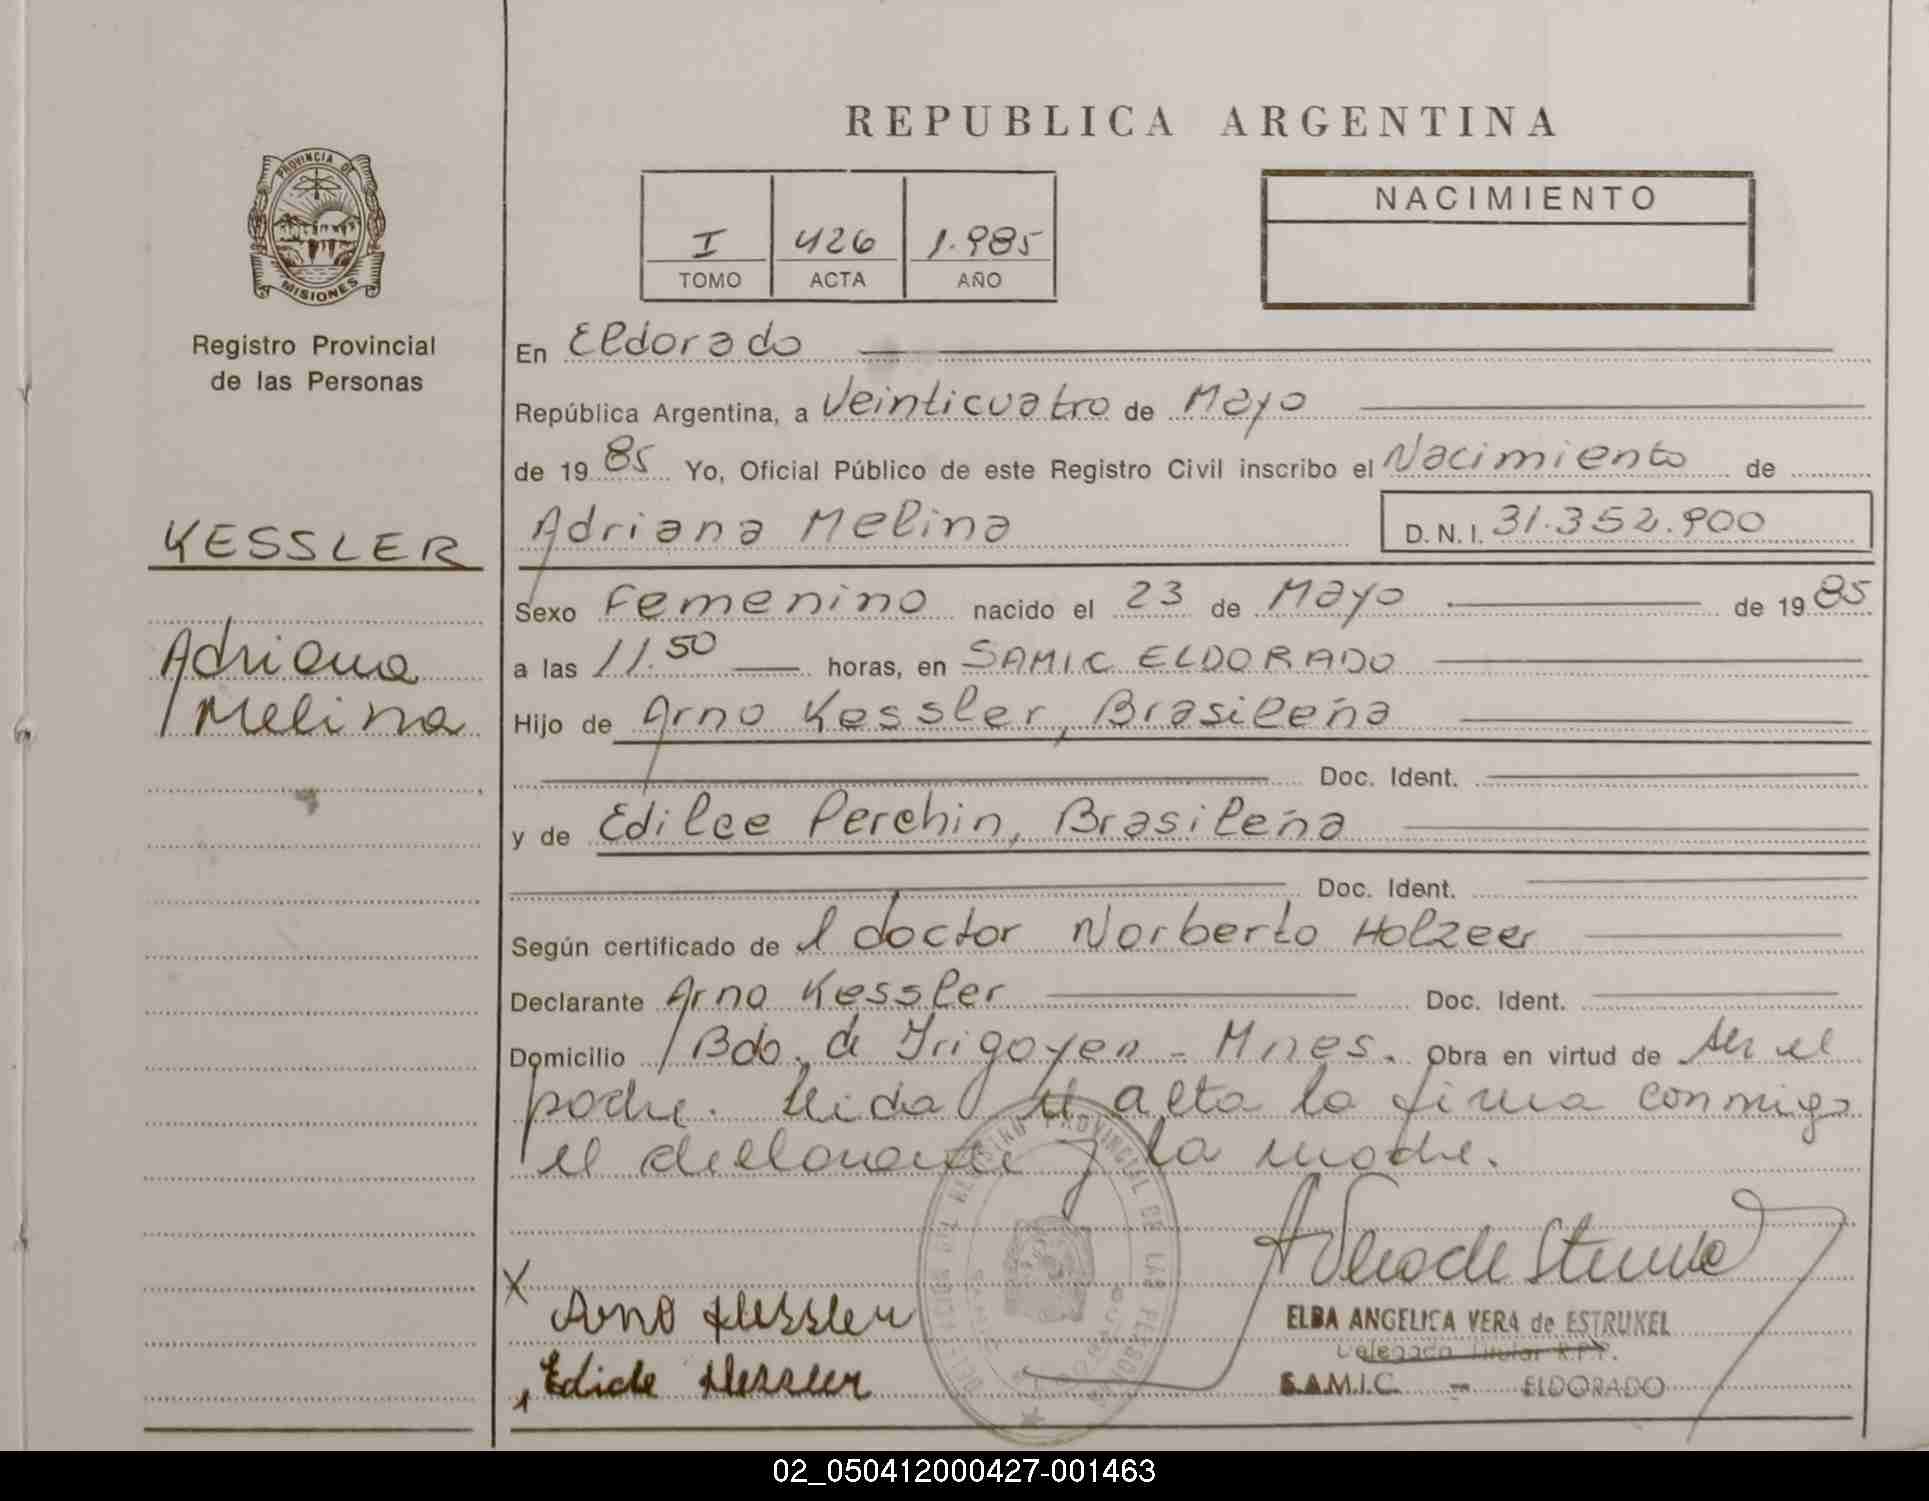 REPUBLICA ARGENTINA
PROVINCIA DE MISIONES
Registro Provincial
de las Personas
I 426 1.985
TOMO ACTA AÑO
NACIMIENTO
En Eldorado
República Argentina, a Veinticuatro de Mayo
de 19 85 Yo, Oficial Público de este Registro Civil inscribo el Nacimiento de
KESSLER
Adriana Melina
Adriana Melina D.N.I. 31.352.900
Sexo Femenino nacido el 23 de Mayo de 19 85
a las 11.50 horas, en SAMIC ELDORADO
Hijo de Arno Kessler, Brasileña
Doc. Ident.
y de Edilce Perchin, Brasileña
Doc. Ident.
Según certificado de l doctor Norberto Holzeer
Declarante Arno Kessler Doc. Ident.
Domicilio Bdo. de Irigoyen - Mnes. Obra en virtud de ser el
padre. Leida el acta la firma conmigo
el declarante y la madre.
X Arno Kessler
Kessler
ELBA ANGELICA VERA de ESTRUKEL
Delegada Titular R.P.P.
S.A.M.I.C. - ELDORADO
REGISTRO PROVINCIAL DE LAS PERSONAS
02_050412000427-001463